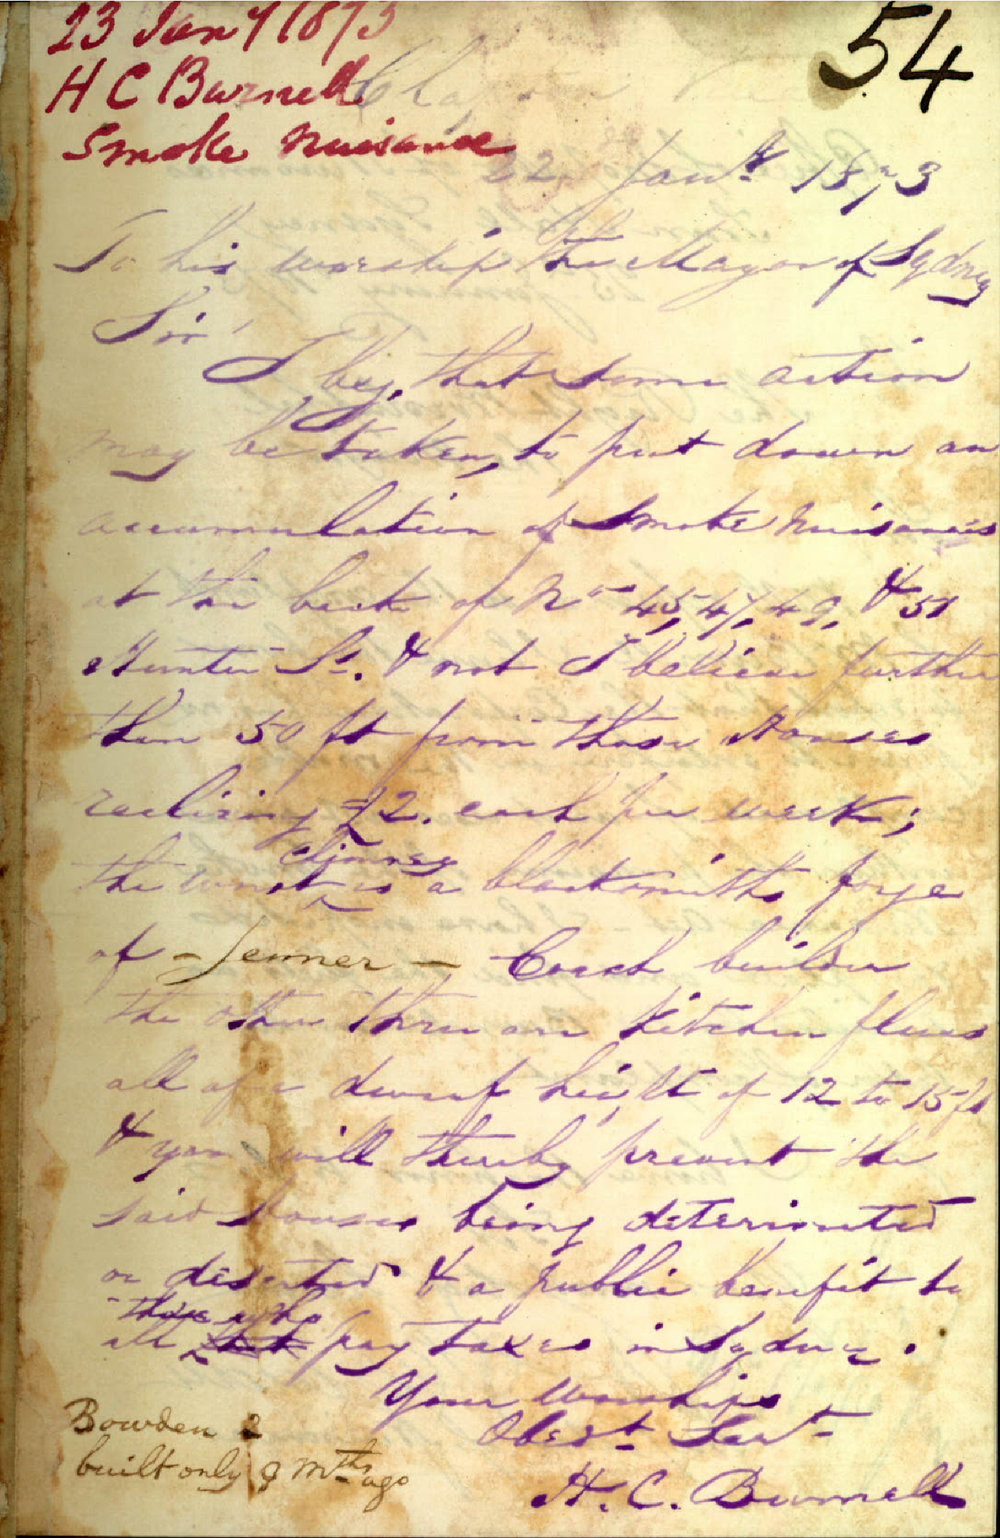 23 Jany 1873
H C Burnell
Smoke Nuisance
54
22 Jany 1873
To his worship the Mayor of Sydney
Sir'
I beg, that some action
may be taken, to put down an
accumulation of Smoke Nuisances
at the back of Nos 45, 47, 49, & 51
Hunter St. & not I believe further
then 50 ft from those Houses
realising £2. each per week;
chimney
the worst is a blacksmiths forge
of - Jenner - Coach builder
the other three are Kitchen flues
all of a dwarf height of 12 to 15 ft
& you will thereby prevent the
said Houses being deteriorated
or deserted & a public benefit to
those who
all that pay taxes in Sydney.
Your Worships
Obedt Servt
H. C. Burnell
Bowden 2
built only 9 Mths ago